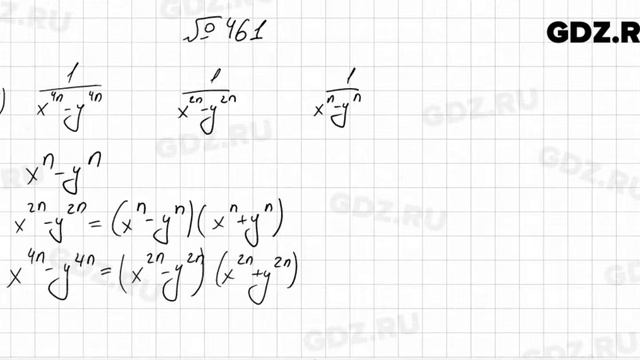 № 461
GDZ.R
) 1/(x^4n - y^4n) 1/(x^2n - y^2n) 1/(x^n - y^n)
x^n - y^n
x^2n - y^2n = (x^n - y^n)(x^n + y^n)
x^4n - y^4n = (x^2n - y^2n)(x^2n + y^2n)
GDZ.RU
GDZ.RU
GDZ.RU
GDZ.RU
GDZ.RU